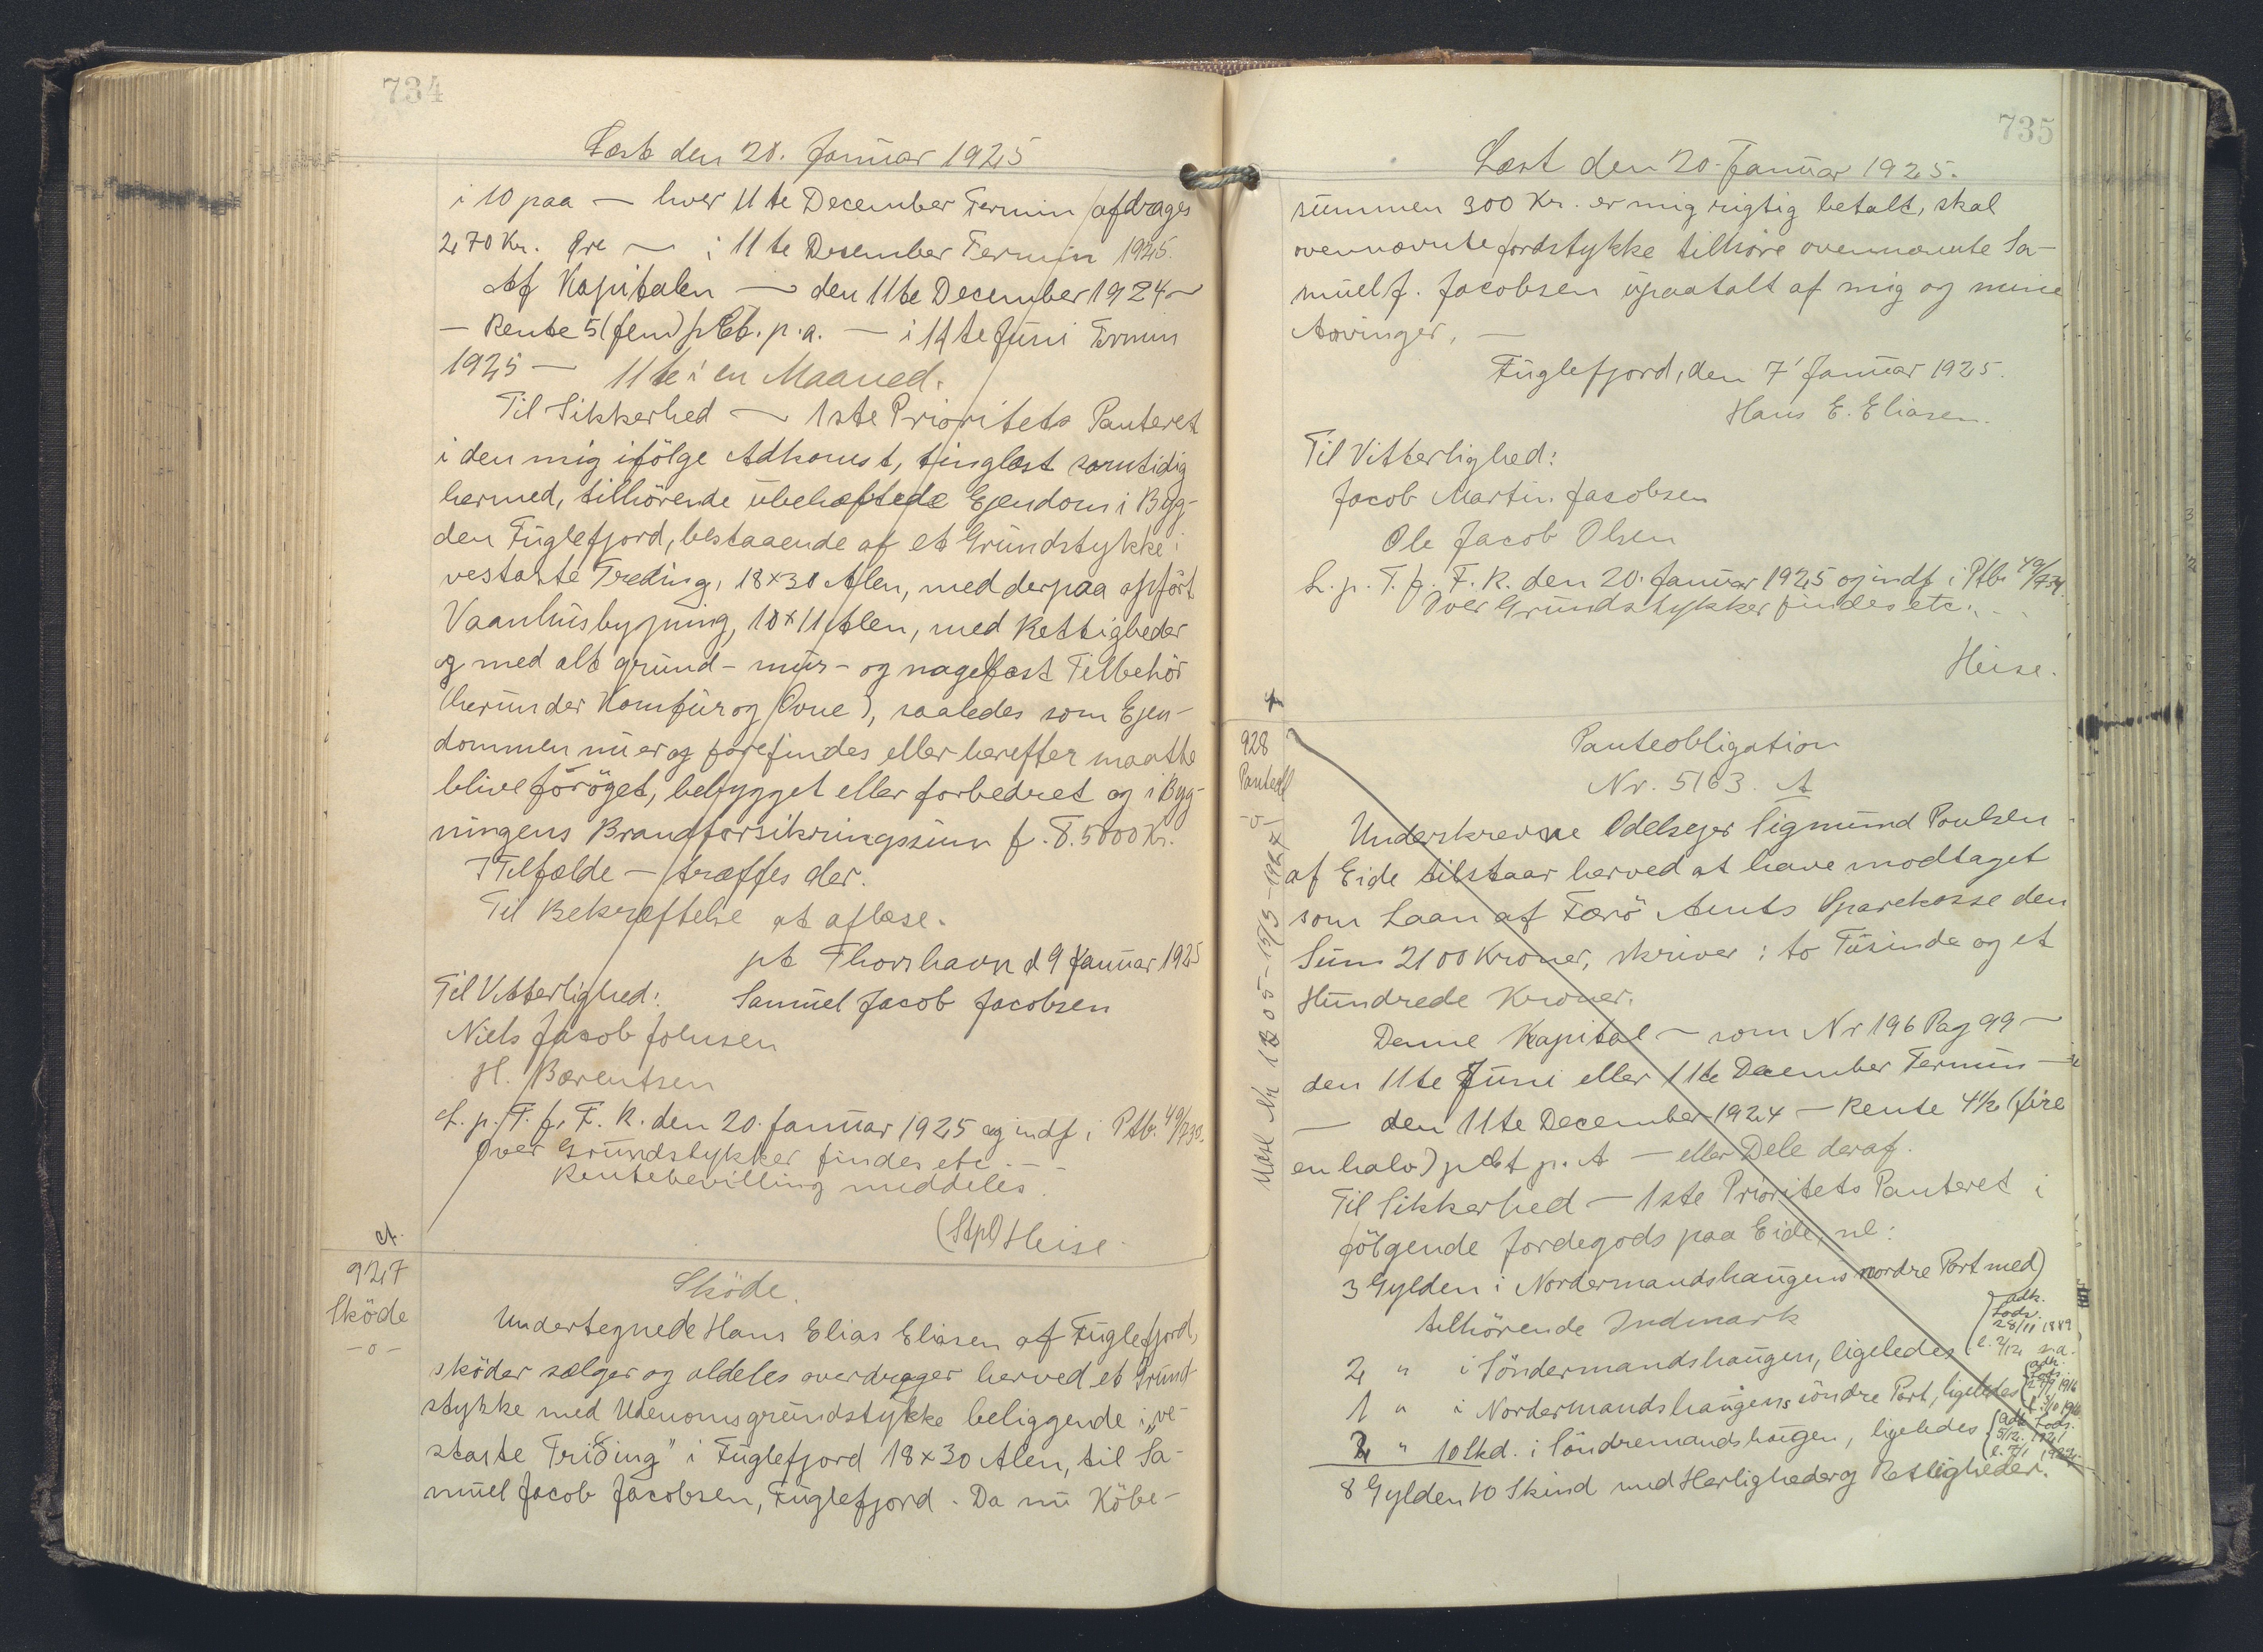 734
Læst den 20. Januar 1925
i 10 paa — hver 11te December Termin afdrages
270 Kr. Øre — i 11te December Termin 1925.
Af Kapitalen — den 11te December 1924 —
— Rente 5 (fem) pCt. p.a. — i 11te Juni Termin
1925 — 11te i en Maaned.
Til Sikkerhed — 1ste Prioritets Panteret
i den mig ifölge Adkomst, tinglæst samtidig
hermed, tilhörende ubehæftede Ejendom i Byg-
den Fuglefjord, bestaaende af et Grundstykke i
vestaste Treding, 18x30 Alen, med derpaa opfört
Vaanhusbygning, 10x11 Alen, med Rettigheder
og med alt grund- mur- og nagelfast Tilbehör
(herunder Komfur og Ovne), saaledes som Ejen-
dommen nu er og forefindes eller herefter maatte
blive foröget, bebygget eller forbedret og i Byg-
ningens Brandforsikringssum f. T. 5000 Kr.
I Tilfælde — træffes der.
Til Bekræftelse at aflæse.
pt Thorshavn d 9 Januar 1925
Til Vitterlighed: Samuel Jacob Jacobsen
Niels Jacob Johnsen
H. Bærentsen
L. p. T. f. F. R. den 20. Januar 1925 og indf i Ptb. 40/730.
Over Grundstykker findes etc. — —
Rentebevilling meddeles.
(Stpl) Heise
A.
927
Sköde
-o-
Sköde.
Undertegnede Hans Elias Eliasen af Fuglefjord,
sköder sælger og aldeles overdrager herved et Grund-
stykke med Udenomsgrundstykke beliggende i „ve-
staste Triðing" i Fuglefjord 18x30 Alen, til Sa-
muel Jacob Jacobsen, Fuglefjord. Da nu Köbe-
735
Læst den 20. Januar 1925.
summen 300 Kr. er mig rigtig betalt, skal
ovennævnte Jordstykke tilhöre ovennævnte Sa-
muel J. Jacobsen upaatalt af mig og mine
Arvinger. —
Fuglefjord, den 7' Januar 1925.
Hans E. Eliasen.
Til Vitterlighed:
Jacob Martin Jacobsen
Ole Jacob Olsen
L. p. T. f. F. R. den 20. Januar 1925 og indf i Ptb. 40/734.
Over Grundstykker findes etc. . .
Heise.
928
Panteobl
-o-
Panteobligation
Nr. 5163. A
Underskrevne Odelsejer Sigmund Poulsen
af Eide tilstaar herved at have modtaget
som Laan af Færö Amts Sparekasse den
Sum 2100 Kroner, skriver: to Tusinde og et
Hundrede Kroner.
Denne Kapital — som Nr 196 Pag 99 —
den 11te Juni eller 11te December Termin —
— den 11te December 1924 — Rente 4½ (fire
en halv) pCt p. A — eller Dele deraf.
Til Sikkerhed — 1ste Prioritets Panteret i
fölgende Jordegods paa Eide, nl:
3 Gylden i Nordermandshaugens nordre Part med
tilhörende Indmark
adk. Lods. 28/11 1889
2 " i Söndermandshaugen, ligeledes
1 " i Nordermandshaugens söndre Part, ligeledes
2 " 10 Skd. i Söndremandshaugen, ligeledes
adk. Lods. 5/12. 1921
8 Gylden 10 Skind med Herligheder og Rettigheder.